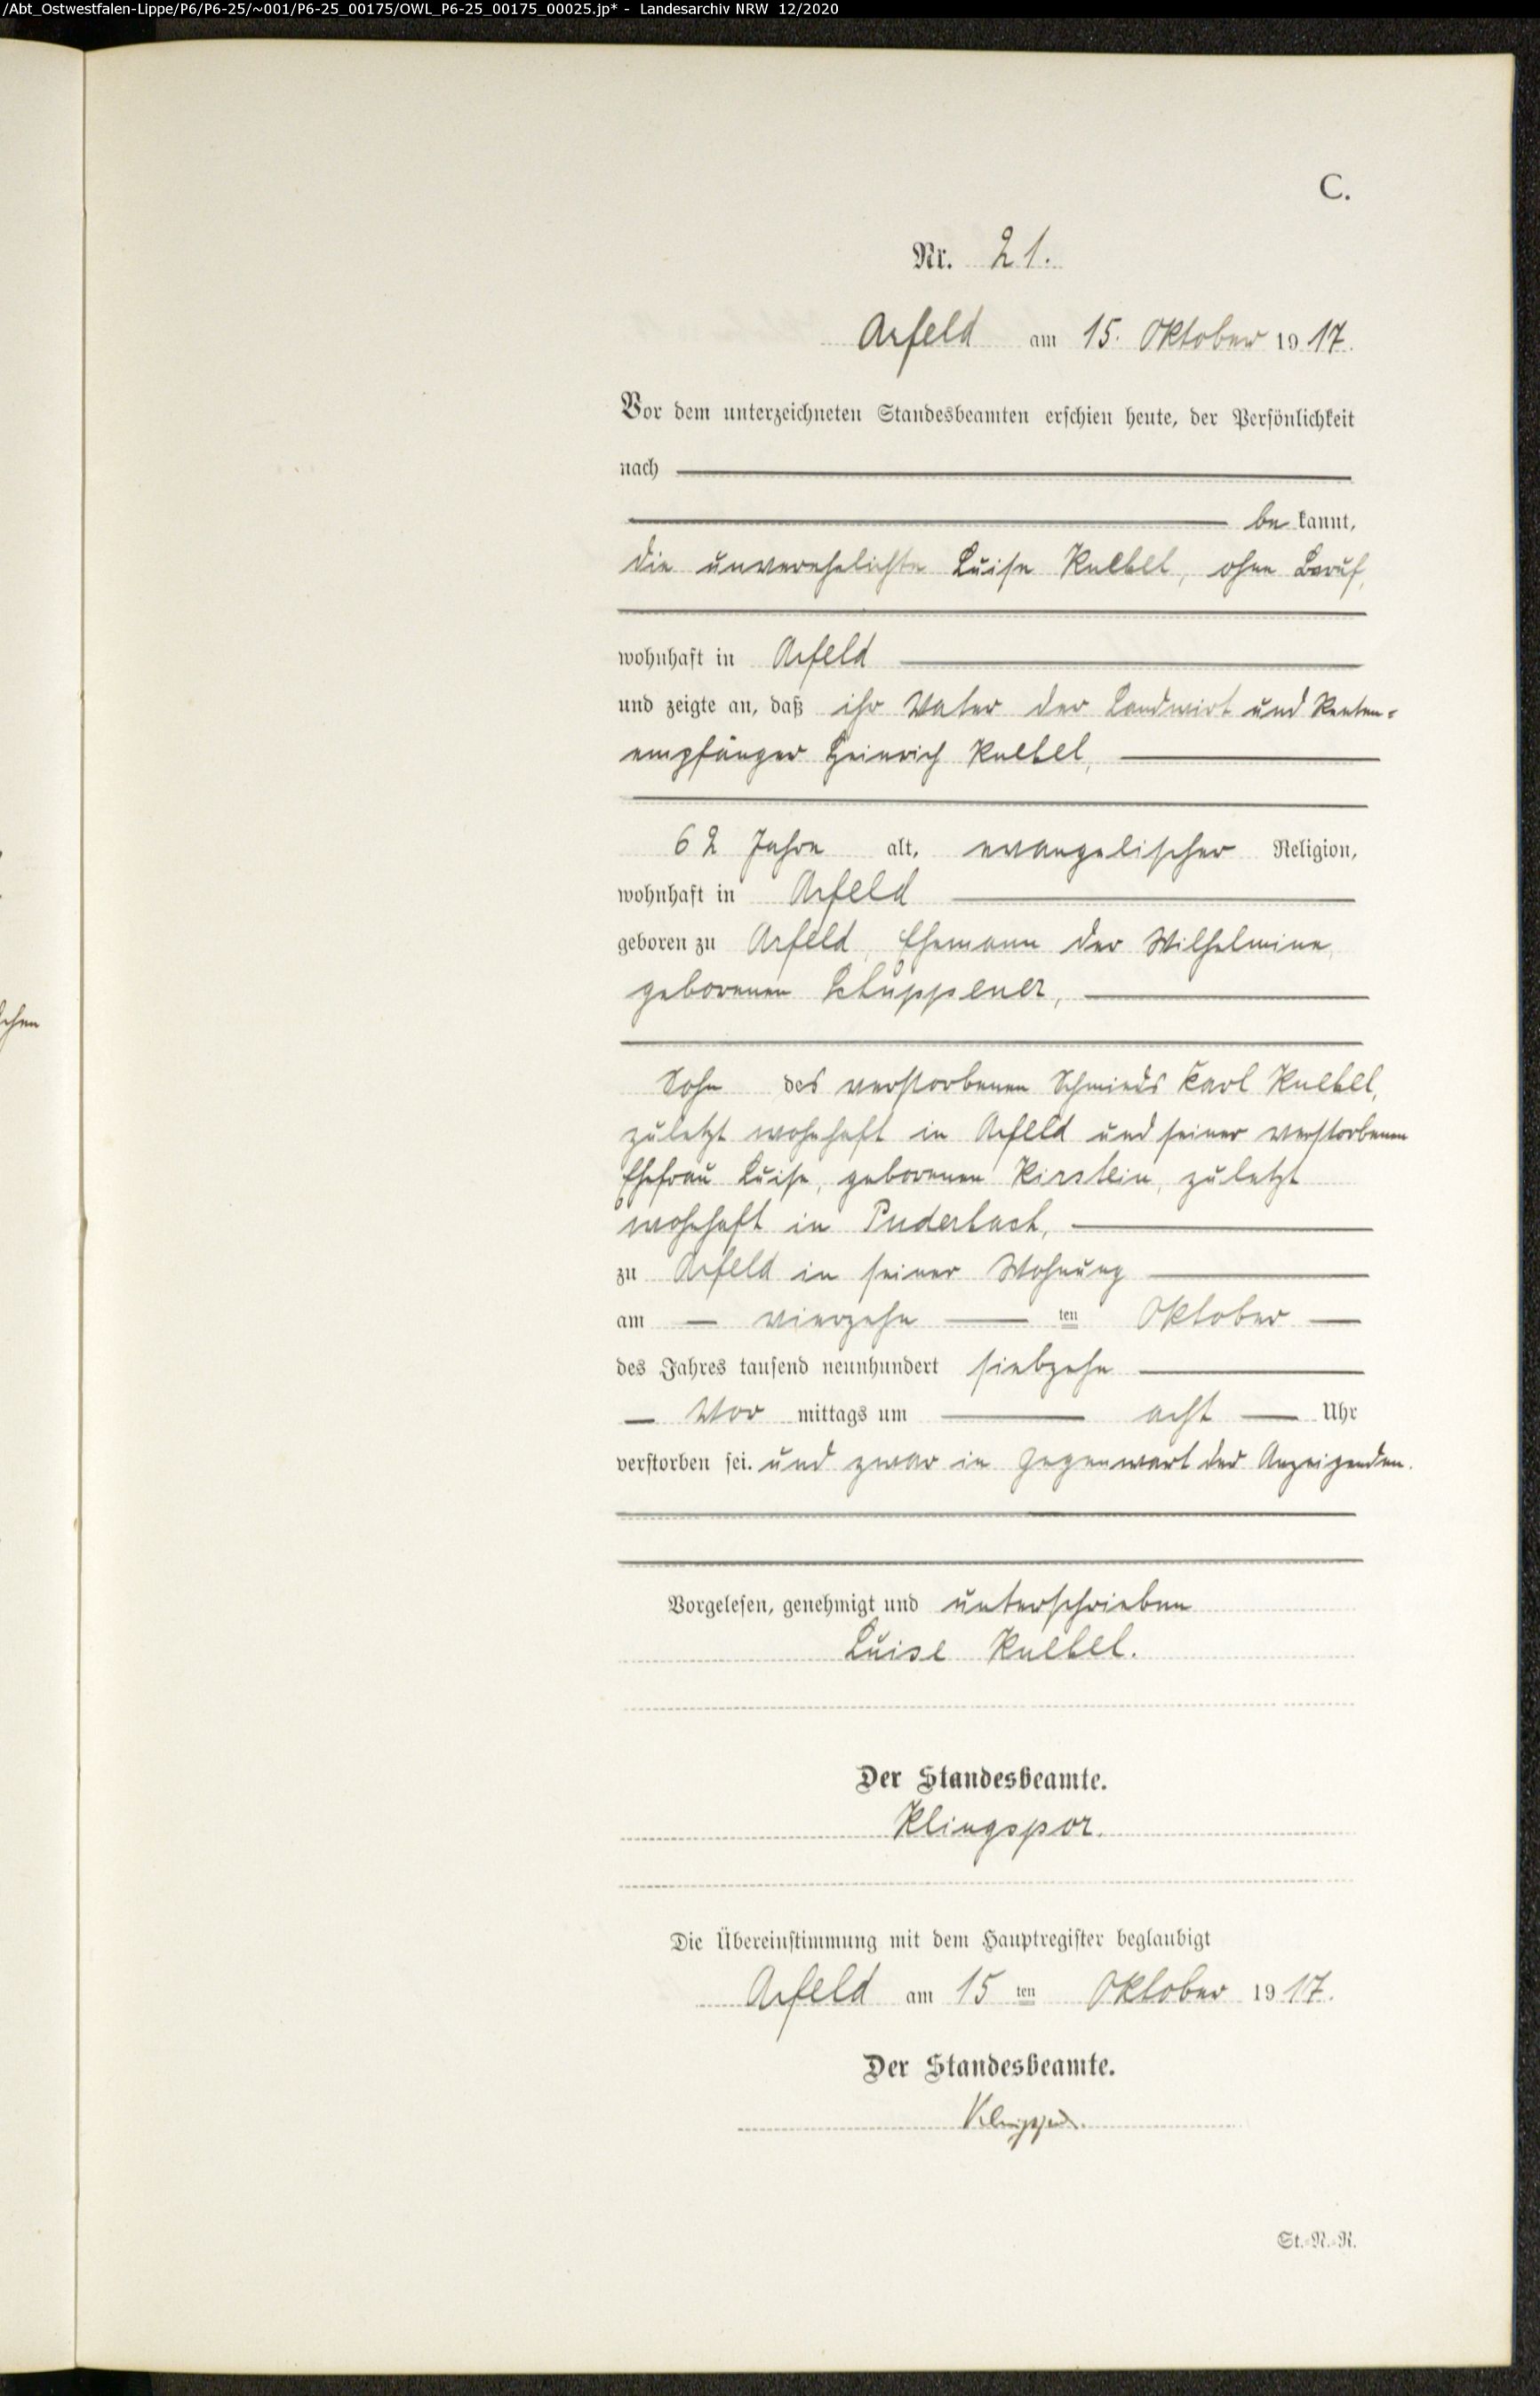 /Abt_Ostwestfalen-Lippe/P6/P6-25/~001/P6-25_00175/OWL_P6-25_00175_00025.jp* - Landesarchiv NRW 12/2020
C.
Nr. 21.
Arfeld am 15. Oktober 1917.
Vor dem unterzeichneten Standesbeamten erschien heute, der Persönlichkeit
nach
bekannt,
die unverehelichte Luise Knebel, ohne Beruf,
wohnhaft in Arfeld
und zeigte an, daß ihr Vater der Landwirt und Renten-
empfänger Heinrich Knebel,
62 Jahre alt, evangelischer Religion,
wohnhaft in Arfeld
geboren zu Arfeld, Ehemann der Wilhelmine,
geborenen Schuppener,
Sohn des verstorbenen Schmieds Karl Knebel,
zuletzt wohnhaft in Arfeld und seiner verstorbenen
Ehefrau Luise, geborenen Kirstein, zuletzt
wohnhaft in Puderbach,
zu Arfeld in seiner Wohnung
am vierzehn ten Oktober
des Jahres tausend neunhundert siebzehn
Vor mittags um acht Uhr
verstorben sei. und zwar in Gegenwart der Anzeigenden.
Vorgelesen, genehmigt und unterschrieben
Luise Knebel.
Der Standesbeamte.
Klingspor.
Die Übereinstimmung mit dem Hauptregister beglaubigt
Arfeld am 15 ten Oktober 1917.
Der Standesbeamte.
Klingspor.
St.-N.-R.